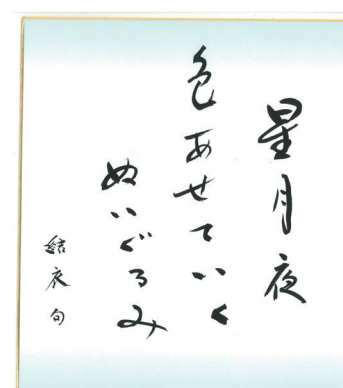 星月夜
色あせていく
ぬいぐるみ
結衣句